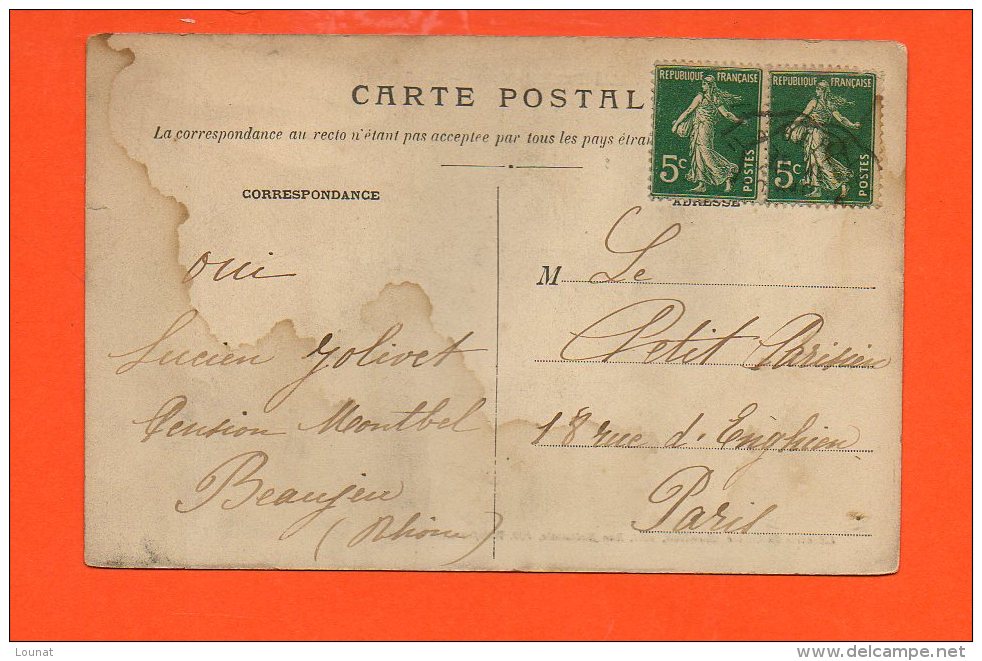 CARTE POSTAL
La correspondance au recto n'étant pas acceptée par tous les pays étran
REPUBLIQUE FRANÇAISE
5c
POSTES
REPUBLIQUE FRANÇAISE
5c
POSTES
CORRESPONDANCE
ADRESSE
oui
Lucien Jolivet
Pension Montbel
Beaujeu
(Rhône)
M Le
Petit Parisien
18 rue d'Enghien
Paris
Lounat
www.delcampe.net